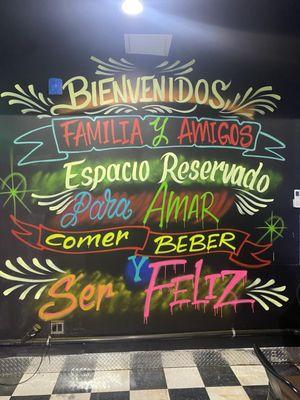 BIENVENIDOS
FAMILIA Y AMIGOS
Espacio Reservado
Para AMAR
COMER BEBER
Y
Ser FELIZ